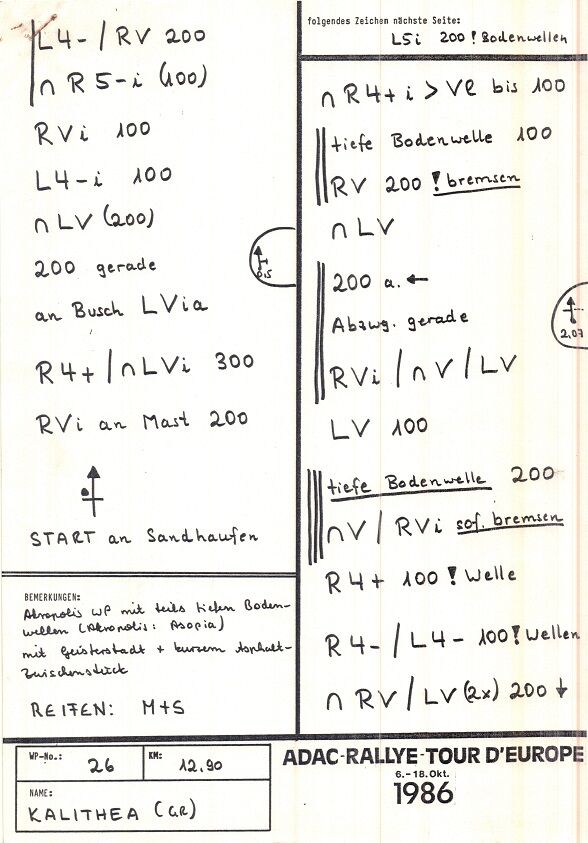 L4- / RV 200
∩ R5-i (100)
RVi 100
L4-i 100
∩ LV (200)
200 gerade
an Busch LVia
R4+ / ∩ LVi 300
RVi an Mast 200
START an Sandhaufen
0,15
BEMERKUNGEN:
Akropolis WP mit teils tiefen Boden-
wellen (Akropolis: Asopia)
mit Geisterstadt + kurzem Asphalt-
zwischenstück
REIFEN: M+S
folgendes Zeichen nächste Seite:
L5i 200 ! Bodenwellen
∩ R4+i > Ve bis 100
tiefe Bodenwelle 100
RV 200 ! bremsen
∩ LV
200 a. ←
Abzwg. gerade
RVi / ∩ V / LV
2,07
LV 100
tiefe Bodenwelle 200
∩V / RVi sof. bremsen
R4+ 100 ! Welle
R4- / L4- 100 ! Wellen
∩ RV / LV (2x) 200 ↓
WP-No.: 26 KM: 12.90
NAME:
KALITHEA (GR)
ADAC-RALLYE-TOUR D'EUROPE
6.-18. Okt.
1986